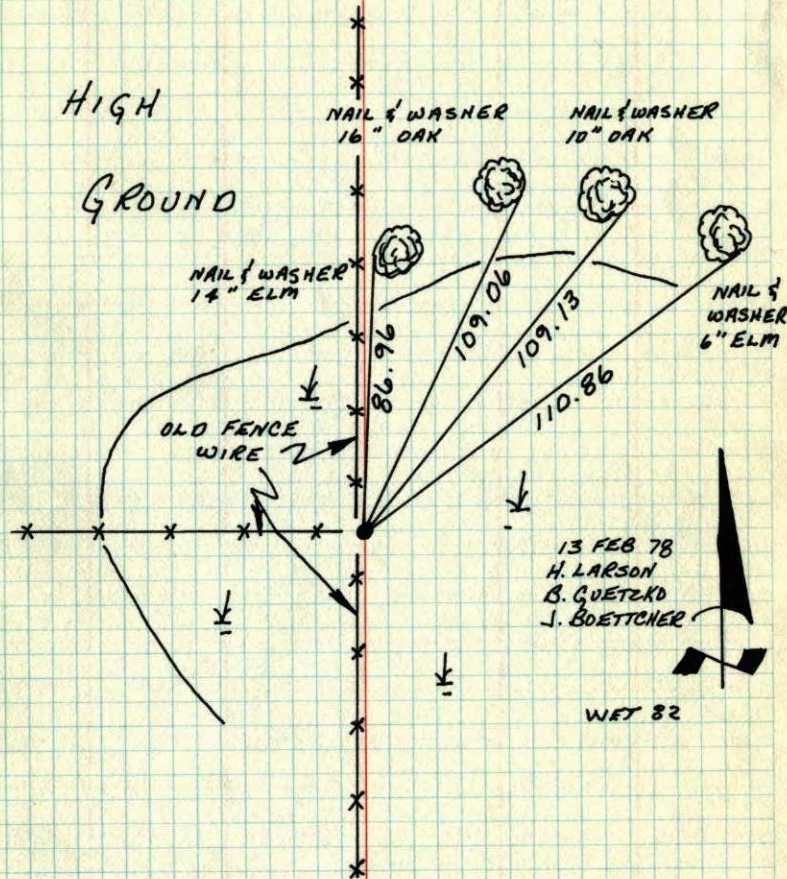 HIGH
GROUND
NAIL & WASHER
16" OAK
NAIL & WASHER
10" OAK
NAIL & WASHER
14" ELM
NAIL &
WASHER
6" ELM
86.96
109.06
109.13
110.86
OLD FENCE
WIRE
13 FEB 78
H. LARSON
B. GUETZKO
J. BOETTCHER
WET 82